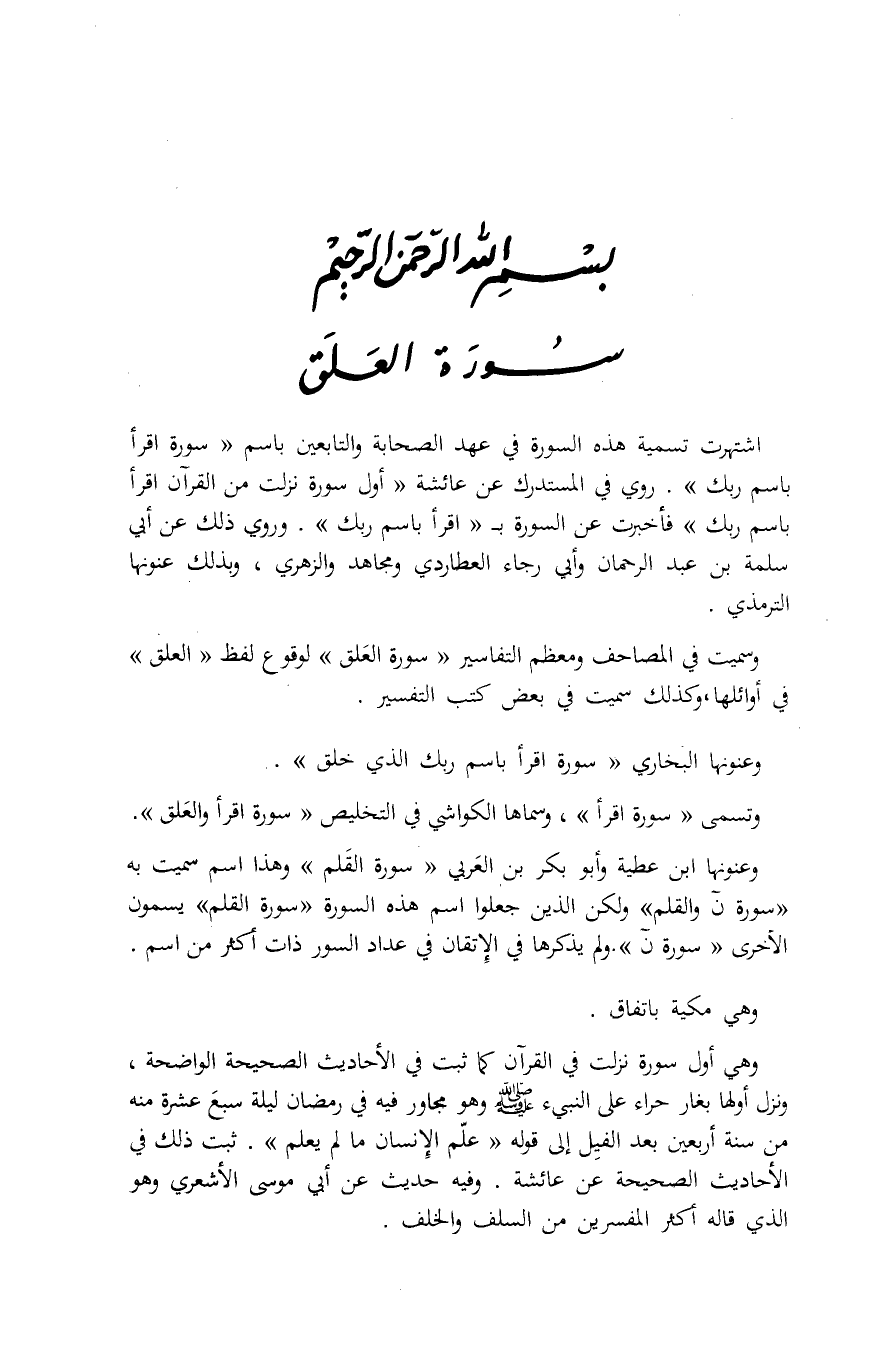 بِسْمِ اللهِ الرَّحْمَنِ الرَّحِيمْ
سُورَة العَلَق
اشتهرت تسمية هذه السورة في عهد الصحابة والتابعين باسم « سورة اقرأ
باسم ربك » . روي في المستدرك عن عائشة « أول سورة نزلت من القرآن اقرأ
باسم ربك » فأخبرت عن السورة بـ « اقرأ باسم ربك » . وروي ذلك عن أبي
سلمة بن عبد الرحمان وأبي رجاء العطاردي ومجاهد والزهري ، وبذلك عنونها
الترمذي .
وسميت في المصاحف ومعظم التفاسير « سورة العَلق » لوقوع لفظ « العلق »
في أوائلها، وكذلك سميت في بعض كتب التفسير .
وعنونها البخاري « سورة اقرأ باسم ربك الذي خلق » .
وتسمى « سورة اقرأ » ، وسماها الكواشي في التخليص « سورة اقرأ والعَلق ».
وعنونها ابن عطية وأبو بكر بن العَربي « سورة القَلم » وهذا اسم سميت به
«سورة نٓ والقلم» ولكن الذين جعلوا اسم هذه السورة «سورة القلم» يسمون
الأخرى « سورة نٓ ». ولم يذكرها في الإتقان في عداد السور ذات أكثر من اسم .
وهي مكية باتفاق .
وهي أول سورة نزلت في القرآن كما ثبت في الأحاديث الصحيحة الواضحة ،
ونزل أولها بغار حراء على النبيء ﷺ وهو مجاور فيه في رمضان ليلة سبعَ عشرة منه
من سنة أربعين بعد الفيل إلى قوله « علّم الإنسان ما لم يعلم » . ثبت ذلك في
الأحاديث الصحيحة عن عائشة . وفيه حديث عن أبي موسى الأشعري وهو
الذي قاله أكثر المفسرين من السلف والخلف .